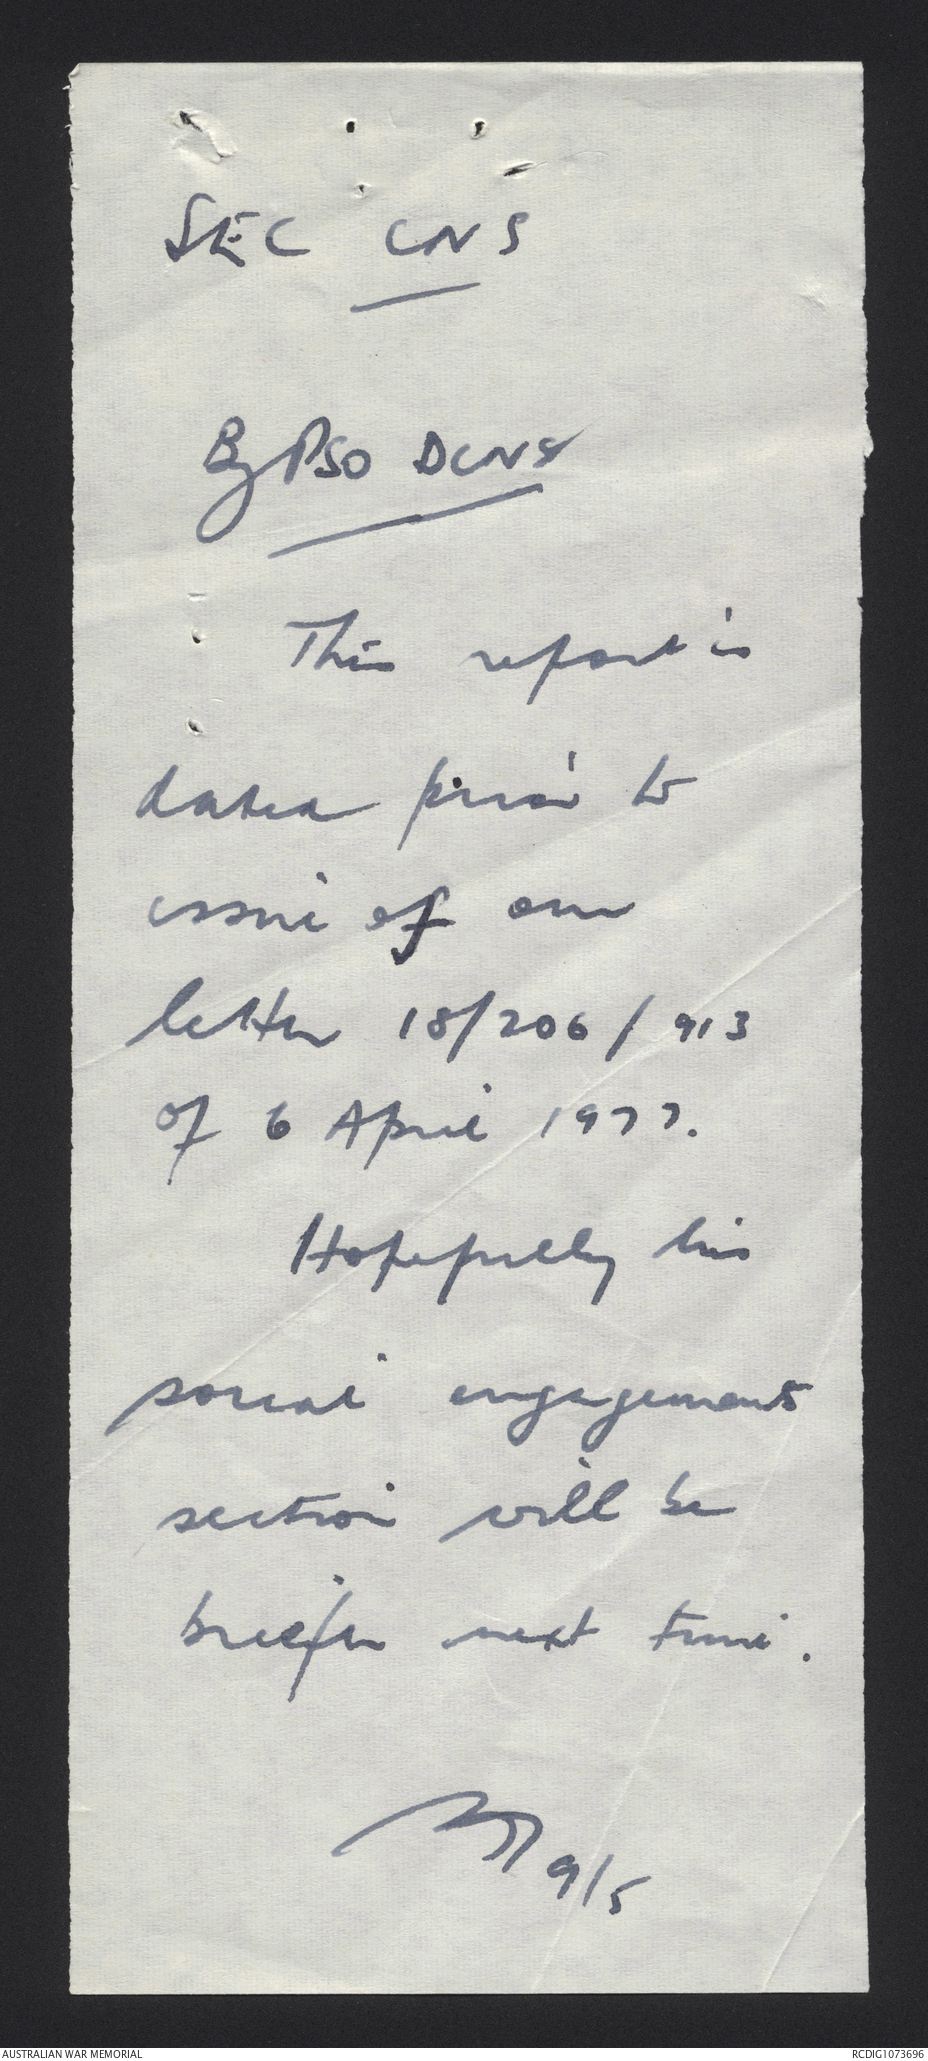 SEC CNS
By PSO DCNS
This report is
dated prior to
issue of our
letter 18/206/913
of 6 April 1977.
Hopefully his
social engagements
section will be
briefer next time.
9/5
AUSTRALIAN WAR MEMORIAL
RCDIG1073696